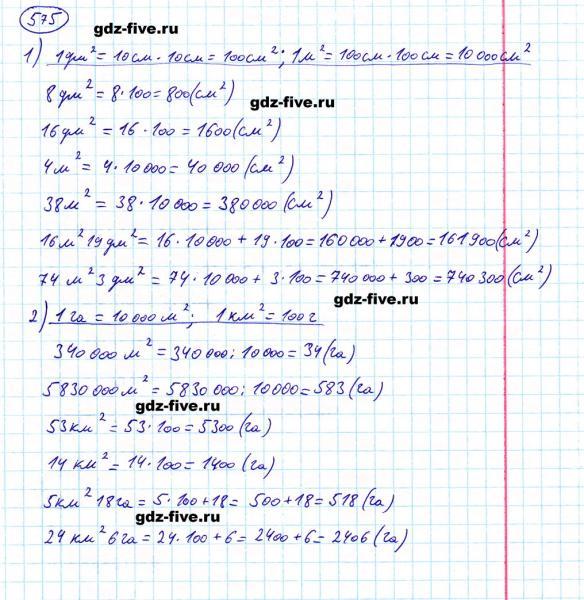 575
gdz-five.ru
1) 1дм² = 10см · 10см = 100см²; 1м² = 100см · 100см = 10 000см²
8дм² = 8·100 = 800(см²)
gdz-five.ru
16дм² = 16 · 100 = 1600(см²)
4м² = 4·10 000 = 40 000 (см²)
38м² = 38·10 000 = 380000 (см²)
16м² 19дм² = 16·10000 + 19·100 = 160000 + 1900 = 161900(см²)
74 м² 3 дм² = 74·10000 + 3·100 = 740000 + 300 = 740300 (см²)
gdz-five.ru
2) 1 га = 10 000 м²; 1 км² = 100 г
340 000 м² = 340 000 : 10000 = 34 (га)
5830 000 м² = 5830 000 : 10000 = 583 (га)
gdz-five.ru
53км² = 53·100 = 5300 (га)
14 км² = 14·100 = 1400 (га)
5км² 18га = 5·100+18 = 500+18 = 518 (га)
gdz-five.ru
24 км² 6га = 24·100 + 6 = 2400 + 6 = 2406 (га)